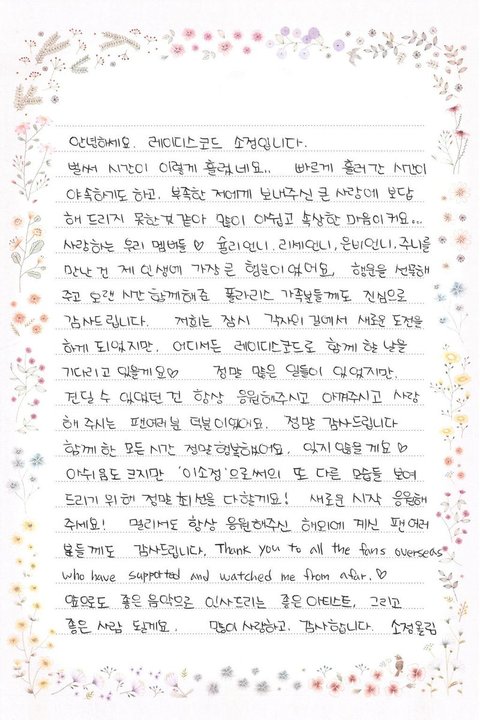 안녕하세요. 레이디스코드 소정입니다.
벌써 시간이 이렇게 흘렀네요.. 빠르게 흘러간 시간이
야속하기도 하고, 부족한 저에게 보내주신 큰 사랑에 보답
해 드리지 못한 것 같아 많이 아쉽고 속상한 마음이 커요...
사랑하는 우리 멤버들♡ 슐리언니, 리세언니, 은비언니, 주니를
만난 건 제 인생에 가장 큰 행복이었어요, 행운을 선물해
주고 오랜 시간 함께해준 폴라리스 가족분들께도 진심으로
감사드립니다. 저희는 잠시 각자의 길에서 새로운 도전을
하게 되었지만, 어디서든 레이디스코드로 함께 할 날을
기다리고 있을게요♡ 정말 많은 일들이 있었지만,
전딜 수 있었던 건 항상 응원해주시고 아껴주시고 사랑
해 주시는 팬여러분 덕분이었어요. 정말 감사드립니다
함께 한 모든 시간 정말 행복했어요. 잊지 않을게요♡
아쉬움도 크지만 '이소정'으로써의 또 다른 모습들 보여
드리기 위해 정말 최선을 다할게요! 새로운 시작 응원해
주세요! 멀리서도 항상 응원해주신 해외에 계신 팬여러
분들께도 감사드립니다. Thank you to all the fans overseas
who have supported and watched me from afar.♡
앞으로도 좋은 음악으로 인사드리는 좋은 아티스트, 그리고
좋은 사람 될게요. 많이 사랑하고, 감사합니다. 소정올림